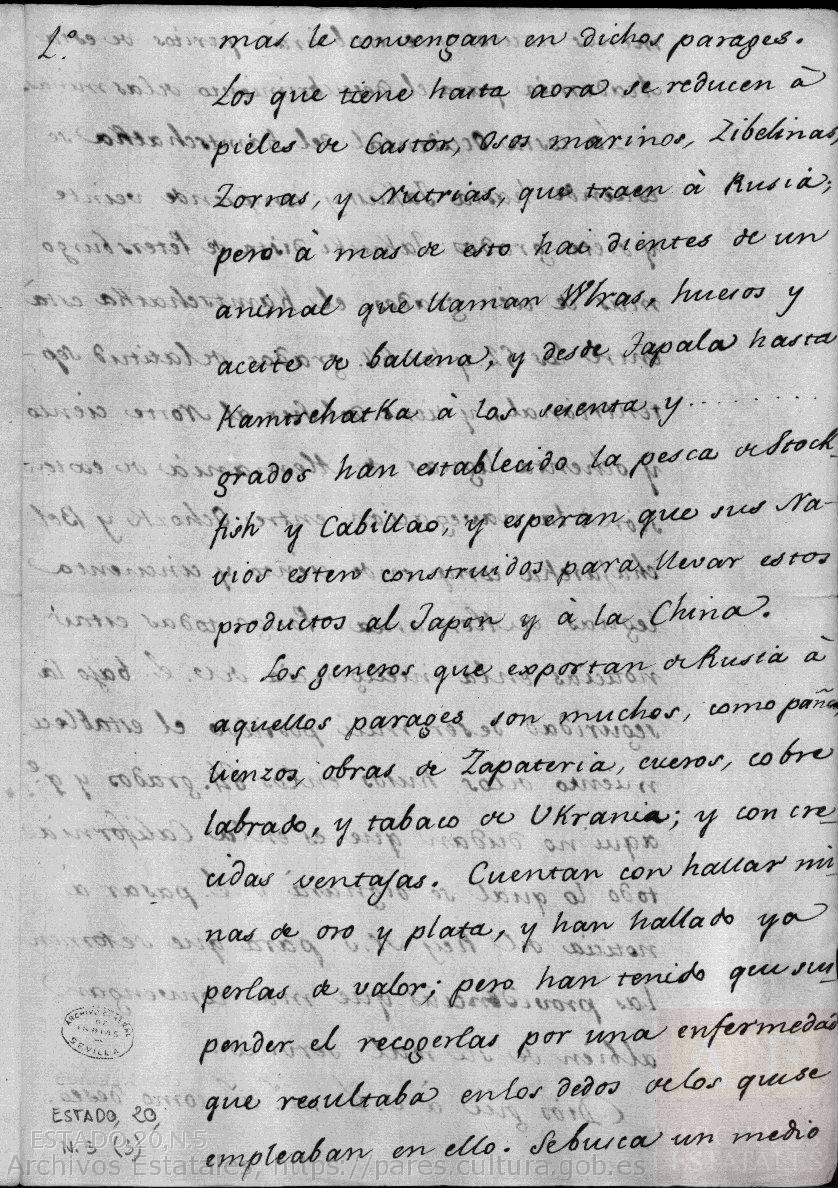 2.º
mas le convengan en dichos parages.
Los que tiene hasta aora se reducen à
pieles de Castor, Osos marinos, Zibelinas,
Zorras, y Nutrias, que traen à Rusia;
pero à mas de esto hai dientes de un
animal que llaman Wlras, huesos y
aceite de ballena, y desde Japala hasta
Kamtschatka à los sesenta y . . . . . . . . .
grados han establecido la pesca de Stock-
fish y Cabillao, y esperan que sus Na-
vios esten construidos para llevar estos
productos al Japon y à la China.
Los generos que exportan de Rusia à
aquellos parages son muchos, como paños
lienzos, obras de Zapateria, cueros, cobre
labrado, y tabaco de UKrania; y con cre-
cidas ventajas. Cuentan con hallar mi-
nas de oro y plata, y han hallado ya
perlas de valor; pero han tenido que sus-
pender el recogerlas por una enfermedad
que resultaba en los dedos de los que se
empleaban en ello. Se busca un medio
ARCHIVO GENERAL
DE
INDIAS
SEVILLA
ESTADO, 20,
N. 5 (3)
ESTADO,20,N.5
Archivos Estatales, https://pares.cultura.gob.es